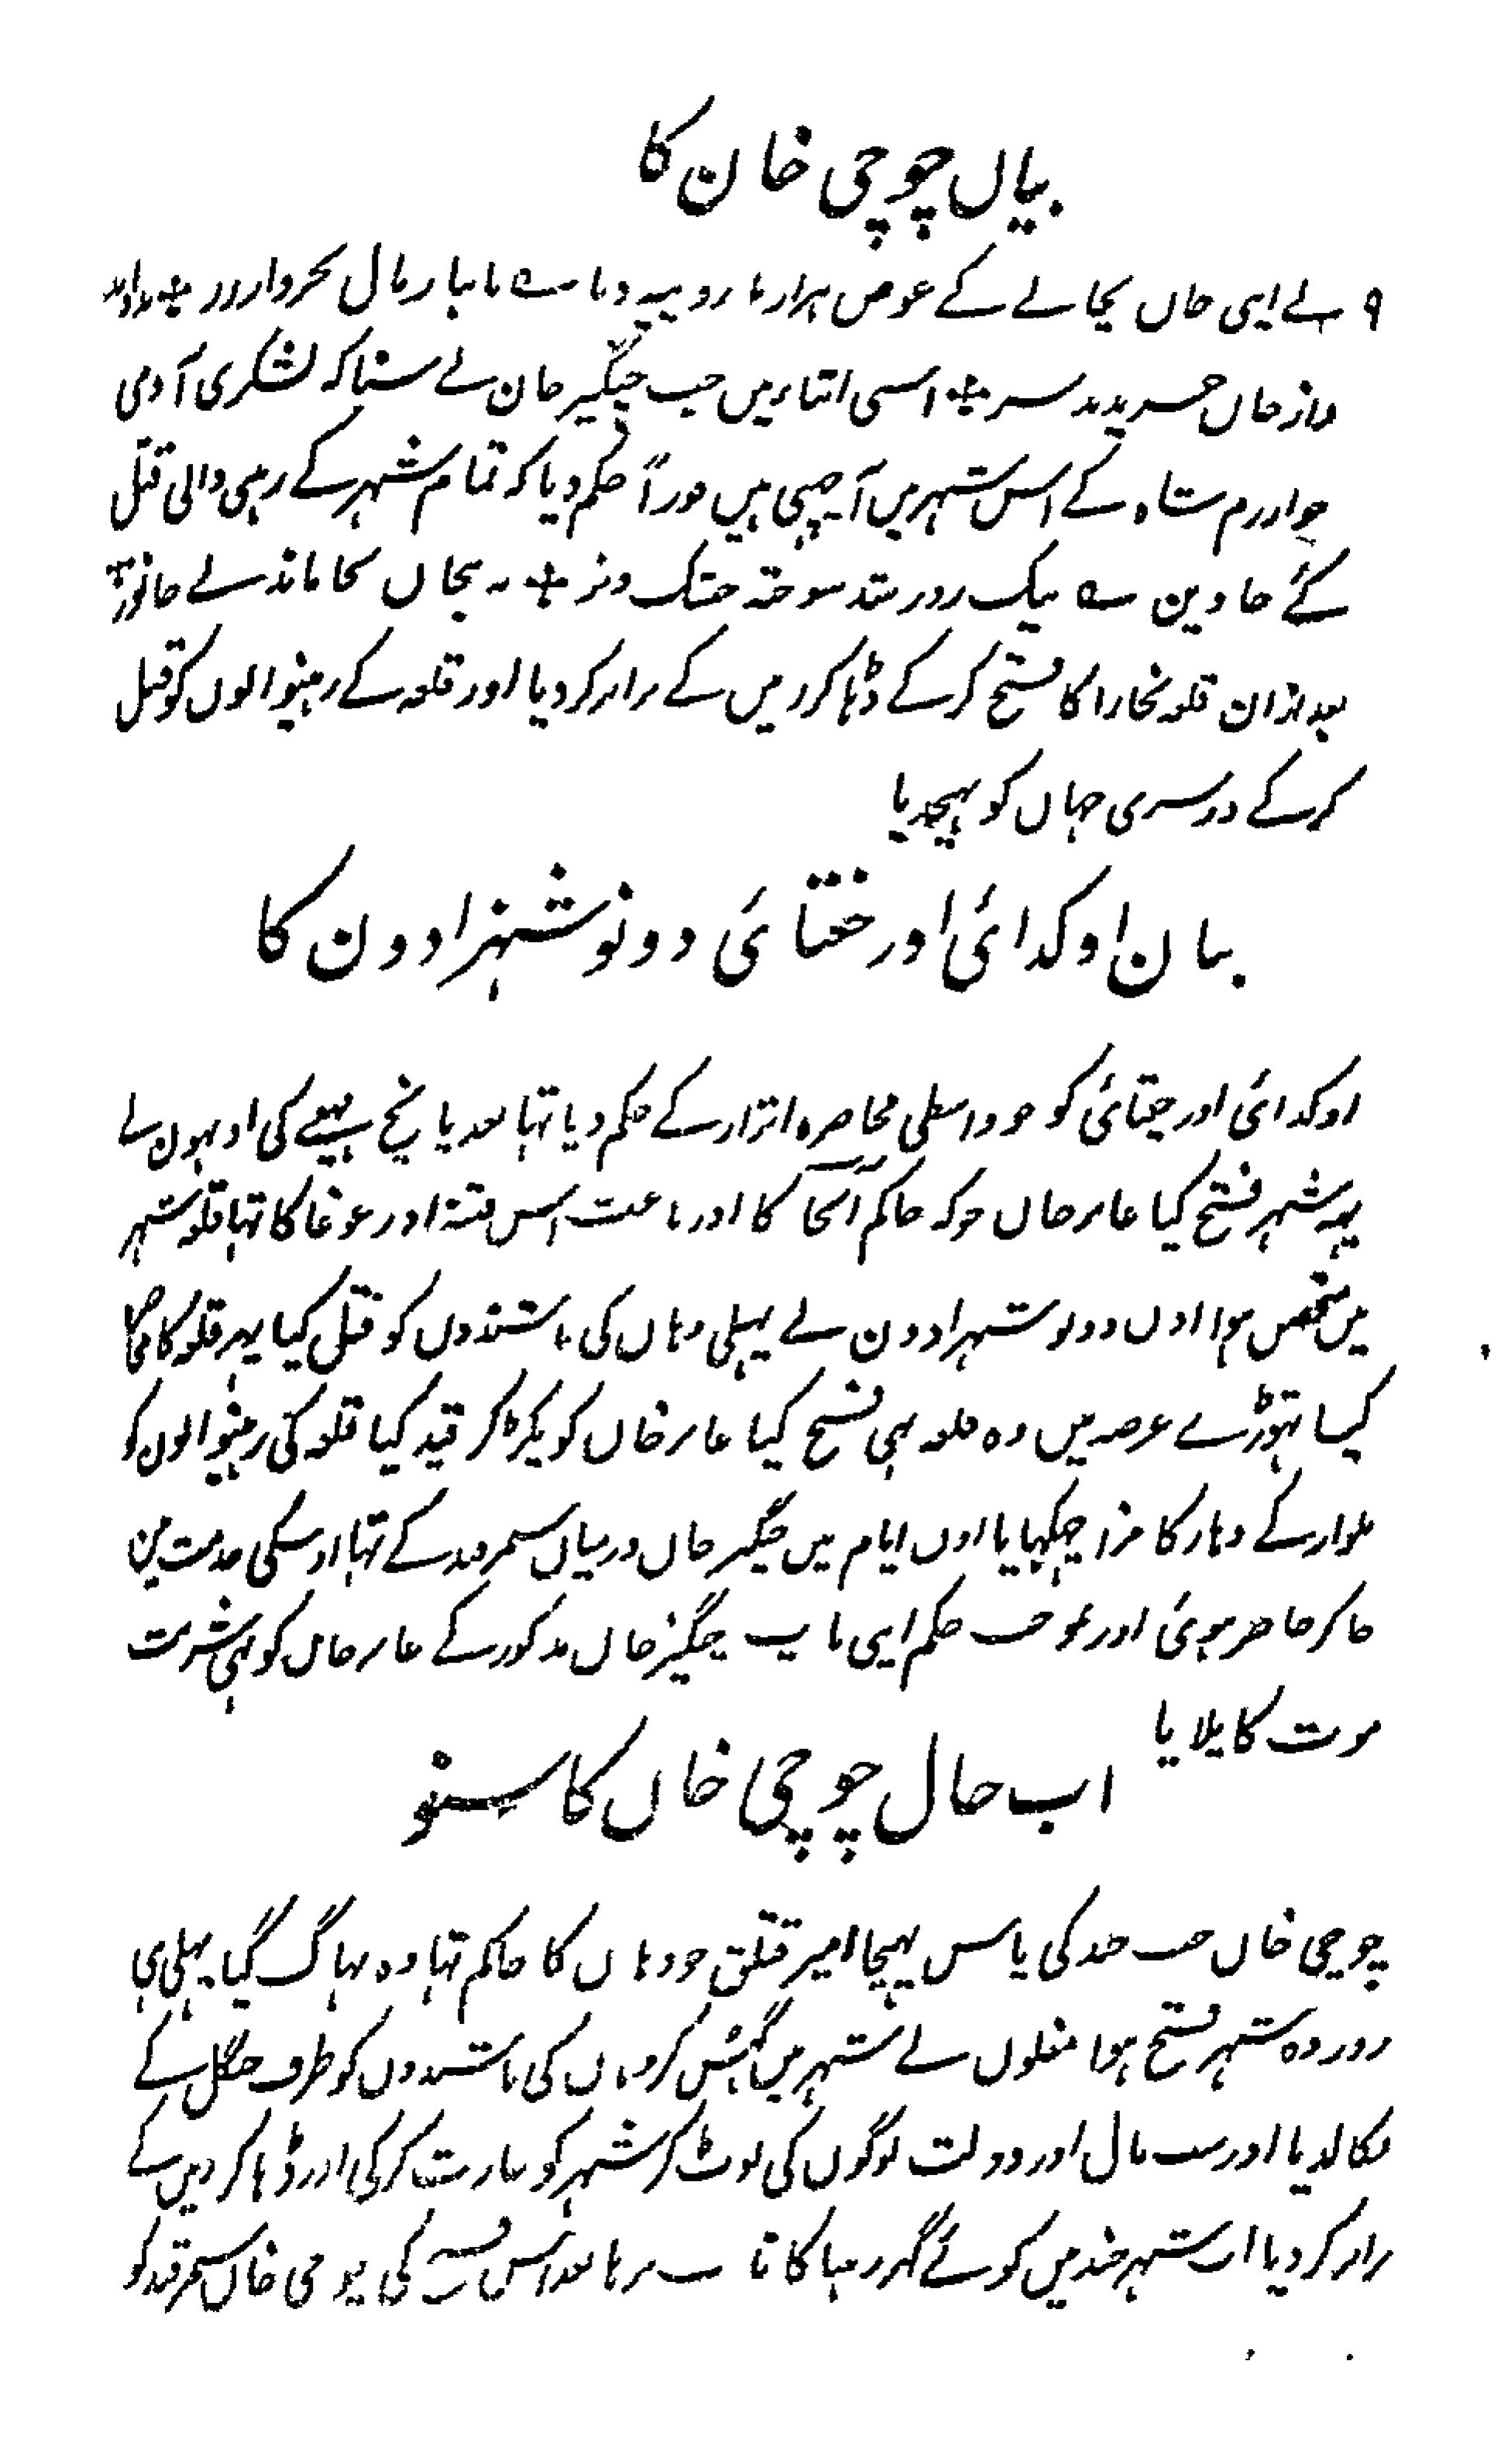 بیاں چوچی خان کا
نے اپنی جاں بچانے کے عوض ہزارہا روپیہ دیا
اسی اثناء میں جب چنگیز خان نے سنا کہ لشکری آدمی
خوارزم شاہ کے اس شہر میں آ چھپی ہیں فوراً حکم دیا کہ تمام شہر کے رہنی والی قتل
کئے جاویں بیک روز شد سوختہ خشک و تر نہ بجاں بجا ماند نے جانور
بعد ازان قلعہ بخارا کا فتح کر کے ڈہا کر زمیں کے برابر کر دیا اور قلعہ کے رہنیوالوں کو قتل
کر کے دوسری جہاں کو بہیجدیا
بیان اوکدائی اور ختائی دونو شہزادون کا
اوکدائی اور چغتائی کو جو واسطی محاصرہ اترار کے حکم دیا تہا بعد پانچ مہینے کی اونہوں نے
یہہ شہر فتح کیا غایر خاں جو کہ حاکم اور باعث اس فتنہ اور غوغا کا تہا قلعہ شہر
میں متحصن ہوا اوں دونو شہزادون نے پہلی وہاں کی باشندوں کو قتل کیا پہر قلعہ کا
کیا تہوڑے عرصہ میں وہ قلعہ بہی فتح کیا غایر خاں کو پکڑ کر قید کیا قلعہ کی رہنیوالون کو
تلوار کے دہار کا مزا چکہایا اوں ایام میں چنگیز خاں درمیاں سمرقند کے تہا اوسکی خدمت مین
جا کر حاضر ہوئی اور بموجب حکم اپنی باپ چنگیز خاں مذکور کے غایر خاں کو بہی شربت
موت کا پلایا
اب حال چوچی خاں کا سنو
چوچی خاں جب جند کی پاس پہنچا امیر قتلق جو وہاں کا حاکم تہا وہ بہاگ گیا پہلی ہی
روز وہ شہر فتح ہوا مغلوں نے شہر میں گہس کر وہاں کی باشندوں کو طرف جنگل کے
نکالدیا اور سب مال اور دولت لوگوں کی لوٹ کر شہر کو غارت کر کی اور ڈہا کر زمیں کے
برابر کر دیا اب شہر جند میں کوئے گہر رہنا کا ثابت نرہا بعد اس فتح کی چوچی خاں سمرقند کو